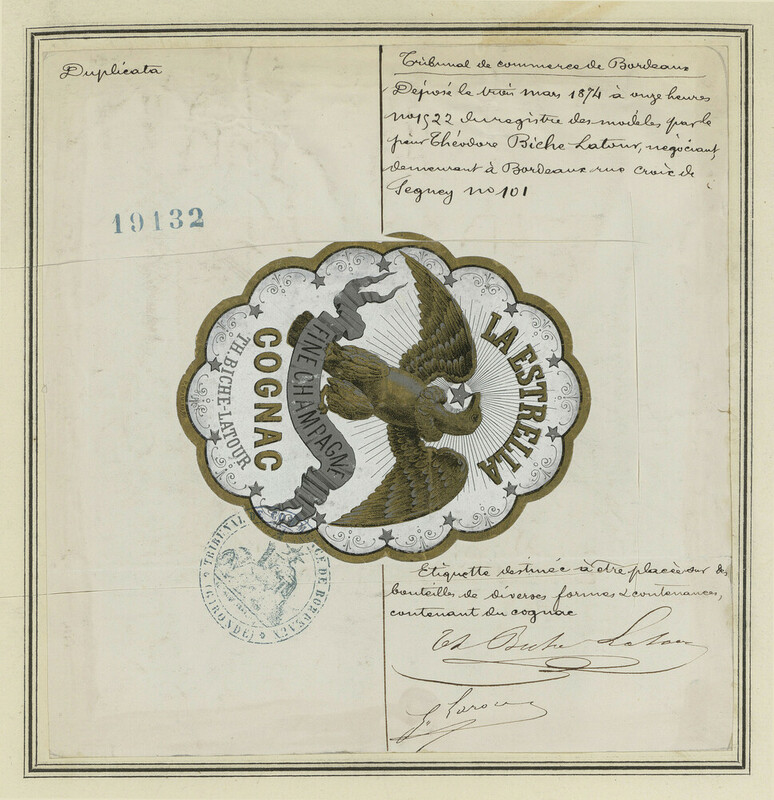 Duplicata
Tribunal de commerce de Bordeaux
Déposé le trois mars 1874 à onze heures
no 1522 du registre des modèles par le
sieur Théodore Biche Latour, négociant,
demeurant à Bordeaux rue Croix de
Segney no 101
19132
LA ESTRELLA
FINE CHAMPAGNE
COGNAC
TH. BICHE-LATOUR
TRIBUNAL CE DE BORDEAUX
(GIRONDE)
Etiquette destinée à être placée sur des
bouteilles de diverses formes & contenances,
contenant du cognac
Th Biche Latour